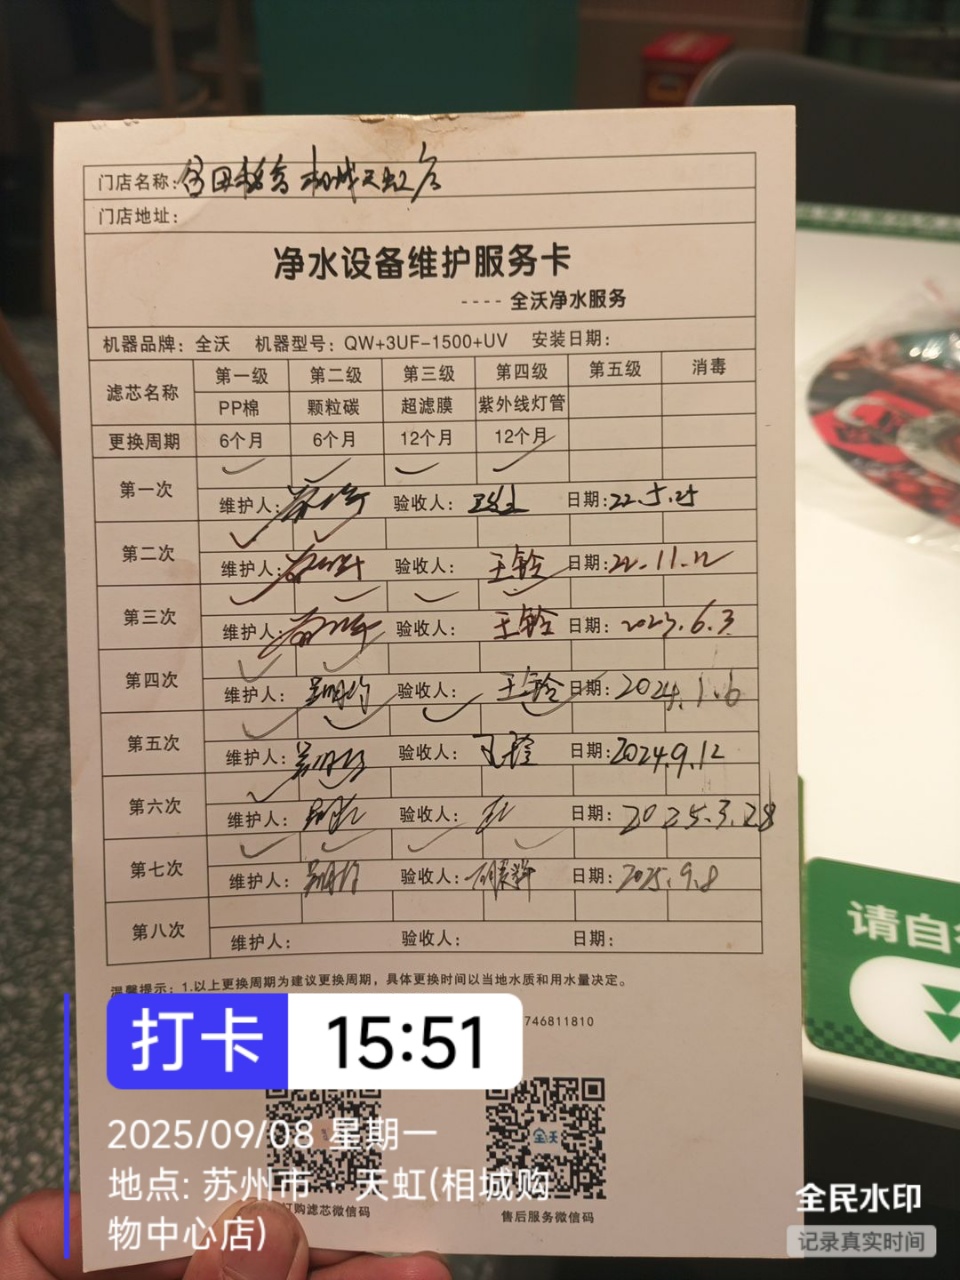 门店名称: 相城天虹店
门店地址:
净水设备维护服务卡
---- 全沃净水服务
机器品牌: 全沃 机器型号: QW+3UF-1500+UV 安装日期:
滤芯名称 第一级 第二级 第三级 第四级 第五级 消毒
PP棉 颗粒碳 超滤膜 紫外线灯管
更换周期 6个月 6个月 12个月 12个月
第一次
维护人: 验收人: 日期: 22.5.25
第二次
维护人: 验收人: 王铃 日期: 22.11.12
第三次
维护人: 验收人: 王铃 日期: 2023.6.3
第四次
维护人: 验收人: 王铃 日期: 2024.1.6
第五次
维护人: 验收人: 日期: 2024.9.12
第六次
维护人: 验收人: 日期: 2025.3.28
第七次
维护人: 验收人: 日期: 2025.9.8
第八次
维护人: 验收人: 日期:
温馨提示: 1.以上更换周期为建议更换周期，具体更换时间以当地水质和用水量决定。
746811810
打卡 15:51
2025/09/08 星期一
地点: 苏州市 · 天虹(相城购
物中心店)
订购滤芯微信码
全沃
售后服务微信码
请自
全民水印
记录真实时间